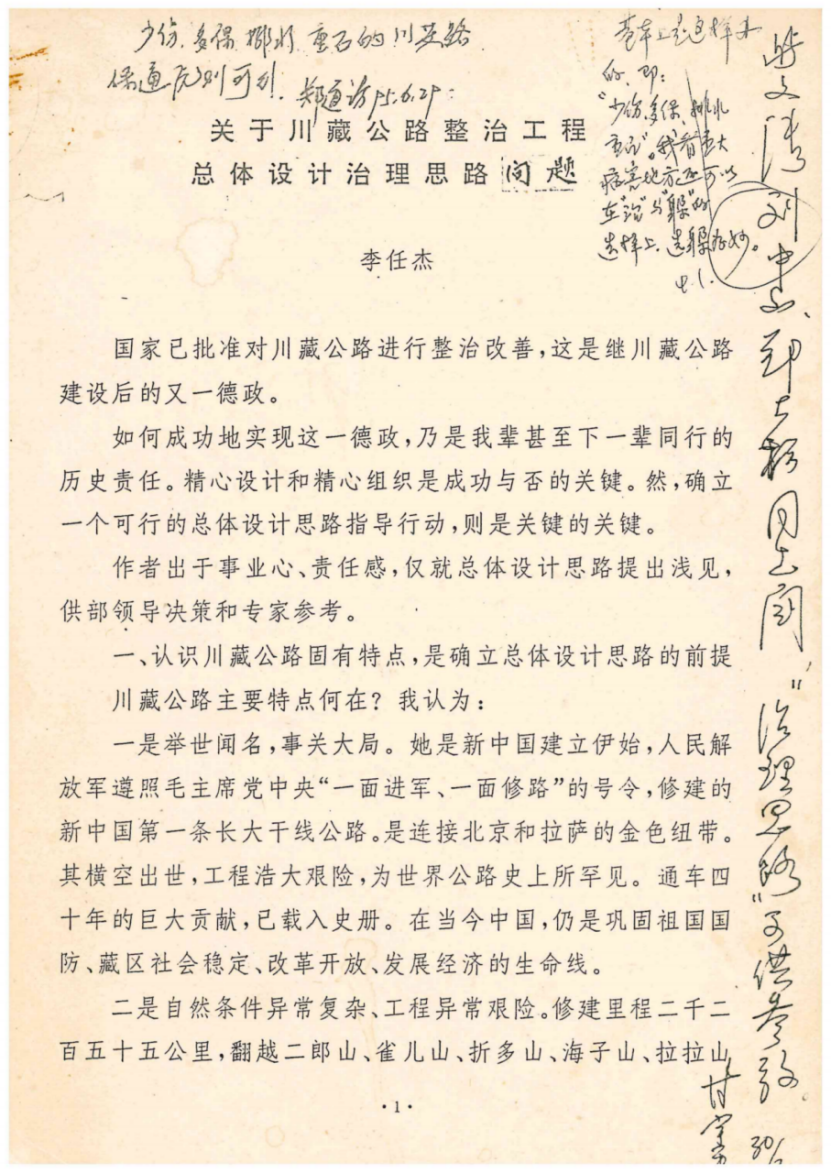 关于川藏公路整治工程
总体设计治理思路问题
李任杰
国家已批准对川藏公路进行整治改善，这是继川藏公路
建设后的又一德政。
如何成功地实现这一德政，乃是我辈甚至下一辈同行的
历史责任。精心设计和精心组织是成功与否的关键。然，确立
一个可行的总体设计思路指导行动，则是关键的关键。
作者出于事业心、责任感，仅就总体设计思路提出浅见，
供部领导决策和专家参考。
一、认识川藏公路固有特点，是确立总体设计思路的前提
川藏公路主要特点何在？我认为：
一是举世闻名，事关大局。她是新中国建立伊始，人民解
放军遵照毛主席党中央“一面进军、一面修路”的号令，修建的
新中国第一条长大干线公路。是连接北京和拉萨的金色纽带。
其横空出世，工程浩大艰险，为世界公路史上所罕见。通车四
十年的巨大贡献，已载入史册。在当今中国，仍是巩固祖国国
防、藏区社会稳定、改革开放、发展经济的生命线。
二是自然条件异常复杂、工程异常艰险。修建里程二千二
百五十五公里，翻越二郎山、雀儿山、折多山、海子山、拉拉山
·1·
同志阅，“治理思路”可供参考